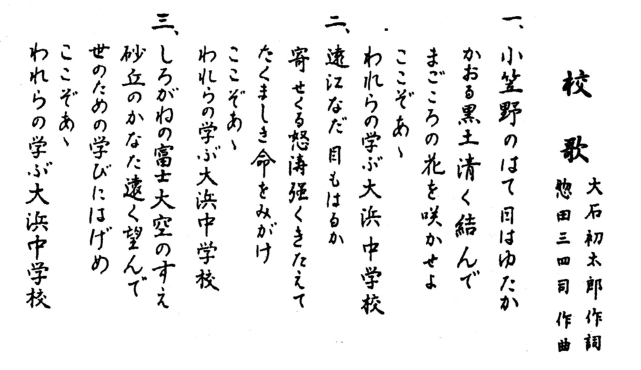 校歌
大石初太郎 作詞
惣田三四司 作曲
一、小笠野のはて目はゆたか
かおる黒土清く結んで
まごころの花を咲かせよ
ここぞあゝ
われらの学ぶ大浜中学校
二、遠江なだ目もはるか
寄せくる怒濤強くきたえて
たくましき命をみがけ
ここぞあゝ
われらの学ぶ大浜中学校
三、しろがねの富士大空のすえ
砂丘のかなた遠く望んで
世のための学びにはげめ
ここぞあゝ
われらの学ぶ大浜中学校